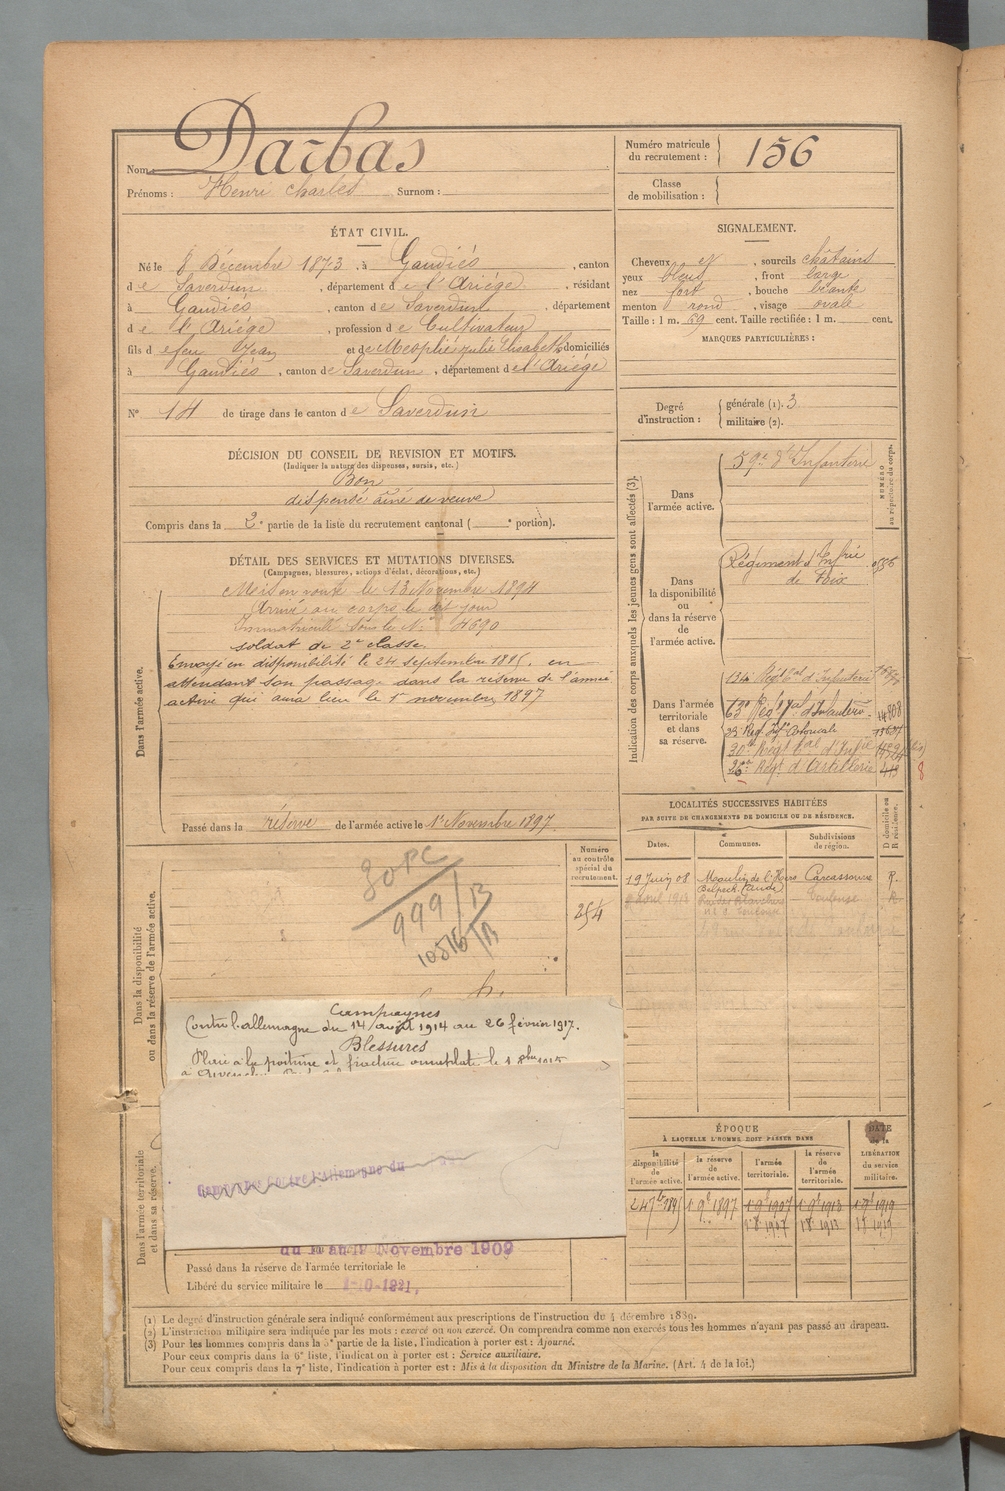 Nom Darbas
Prénoms : Henri Charles Surnom :
Numéro matricule du recrutement : 156
Classe de mobilisation :
ÉTAT CIVIL.
Né le 8 Décembre 1873, à Gaudiés, canton
de Saverdun, département de l'Ariége, résidant
à Gaudiés, canton de Saverdun, département
de l'Ariége, profession de Cultivateur
fils de feu Jean et de Mesplié Julie Elisabeth domiciliés
à Gaudiés, canton de Saverdun, département de l'Ariége
N° 14 de tirage dans le canton de Saverdun
SIGNALEMENT.
Cheveux et, sourcils châtains
yeux bleus, front large
nez fort, bouche béante
menton rond, visage ovale
Taille : 1 m. 69 cent. Taille rectifiée : 1 m. cent.
MARQUES PARTICULIÈRES :
Degré d'instruction : générale (1). 3
militaire (2).
DÉCISION DU CONSEIL DE REVISION ET MOTIFS.
(Indiquer la nature des dispenses, sursis, etc.)
Bon
dispensé aîné de veuve
Compris dans la 2e partie de la liste du recrutement cantonal ( e portion).
DÉTAIL DES SERVICES ET MUTATIONS DIVERSES.
(Campagnes, blessures, actions d'éclat, décorations, etc.)
Dans l'armée active.
Mis en route le 13 Novembre 1894
Arrivé au corps le dit jour
Immatriculé sous le N° 4690
soldat de 2e classe.
Envoyé en disponibilité le 24 septembre 1895, en
attendant son passage dans la réserve de l'armée
active qui aura lieu le 1er novembre 1897
Passé dans la réserve de l'armée active le 1er Novembre 1897
Indication des corps auxquels les jeunes gens sont affectés (3).
NUMÉRO au répertoire du corps.
Dans l'armée active.
59e d'Infanterie
Dans la disponibilité ou dans la réserve de l'armée active.
Régiment d'Infrie
de Foix
Dans l'armée territoriale et dans sa réserve.
134 Régt tal d'Infanterie
Régt tal d'Infanterie
14908
23 Reg. Inf. Coloniale
30e Régt tal d'Infie
Régt d'Artillerie
8
LOCALITÉS SUCCESSIVES HABITÉES
PAR SUITE DE CHANGEMENTS DE DOMICILE OU DE RÉSIDENCE.
Dates. Communes. Subdivisions de région. D domicile ou R résidence.
19 Juin 08 Belpech Aude Carcassonne R.
Toulouse R
Dans la disponibilité ou dans la réserve de l'armée active.
Numéro au contrôle spécial du recrutement.
254
30 PC
999/B
10516/B
Campagnes
Contre l'allemagne du 14 août 1914 au 26 février 1917.
Blessures
Plaie à la poitrine et fracture omoplate le
Campagne contre l'Allemagne du
Dans l'armée territoriale et dans sa réserve.
du au Novembre 1909
Passé dans la réserve de l'armée territoriale le
Libéré du service militaire le 1-10-1921.
ÉPOQUE
À LAQUELLE L'HOMME DOIT PASSER DANS
la disponibilité de l'armée active. la réserve de l'armée active. l'armée territoriale. la réserve de l'armée territoriale. DATE de la LIBÉRATION du service militaire.
24 7bre 1895 1er 9bre 1897 1er 9bre 1907 1er 9bre 1913 1er 9bre 1919
(1) Le degré d'instruction générale sera indiqué conformément aux prescriptions de l'instruction du 4 décembre 1889.
(2) L'instruction militaire sera indiquée par les mots : exercé ou non exercé. On comprendra comme non exercés tous les hommes n'ayant pas passé au drapeau.
(3) Pour les hommes compris dans la 5e partie de la liste, l'indication à porter est : Ajourné.
Pour ceux compris dans la 6e liste, l'indication à porter est : Service auxiliaire.
Pour ceux compris dans la 7e liste, l'indication à porter est : Mis à la disposition du Ministre de la Marine. (Art. 4 de la loi.)